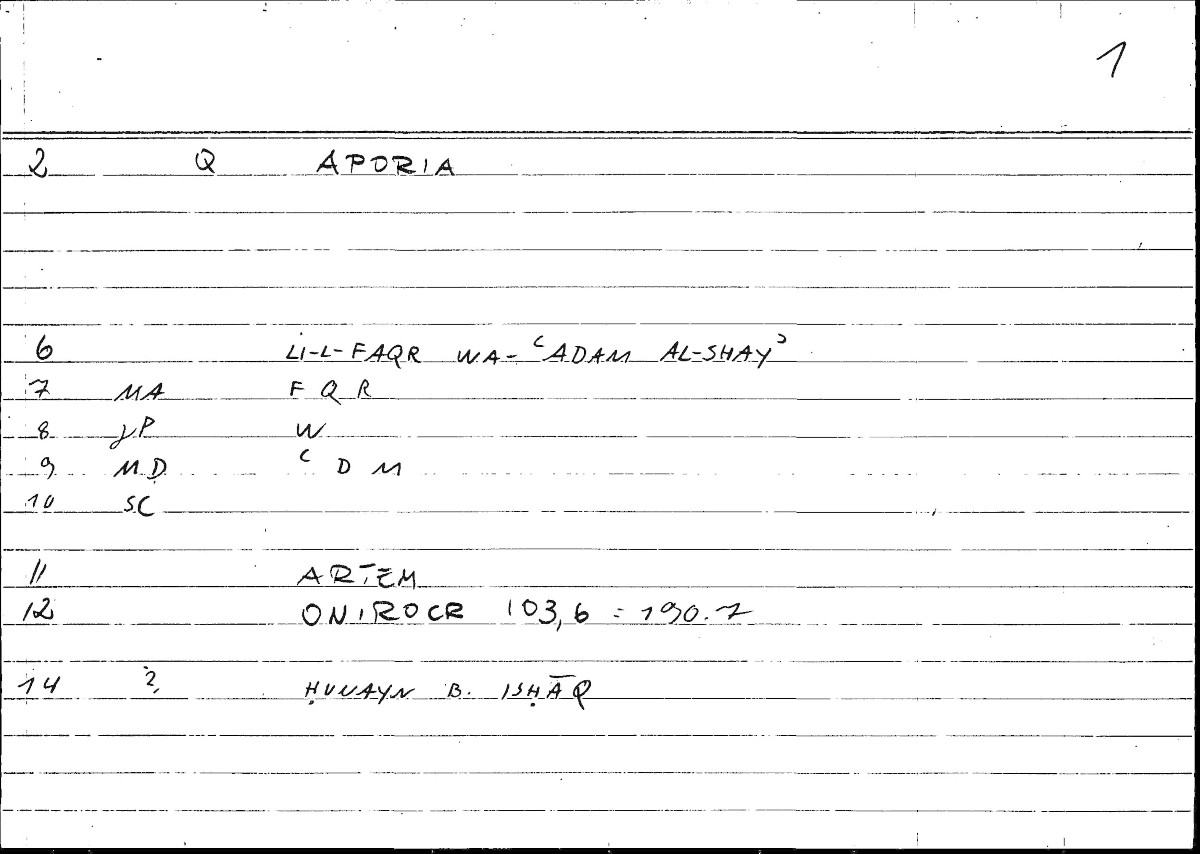 1
2 Q APORIA
6 LI-L-FAQR WA-ʿADAM AL-SHAYʾ
7 MA FQR
8 JP W
9 MD ʿDM
10 SC
11 ARTEM
12 ONIROCR 103,6 = 190.7
14 ? ḤUNAYN B. ISḤĀQ